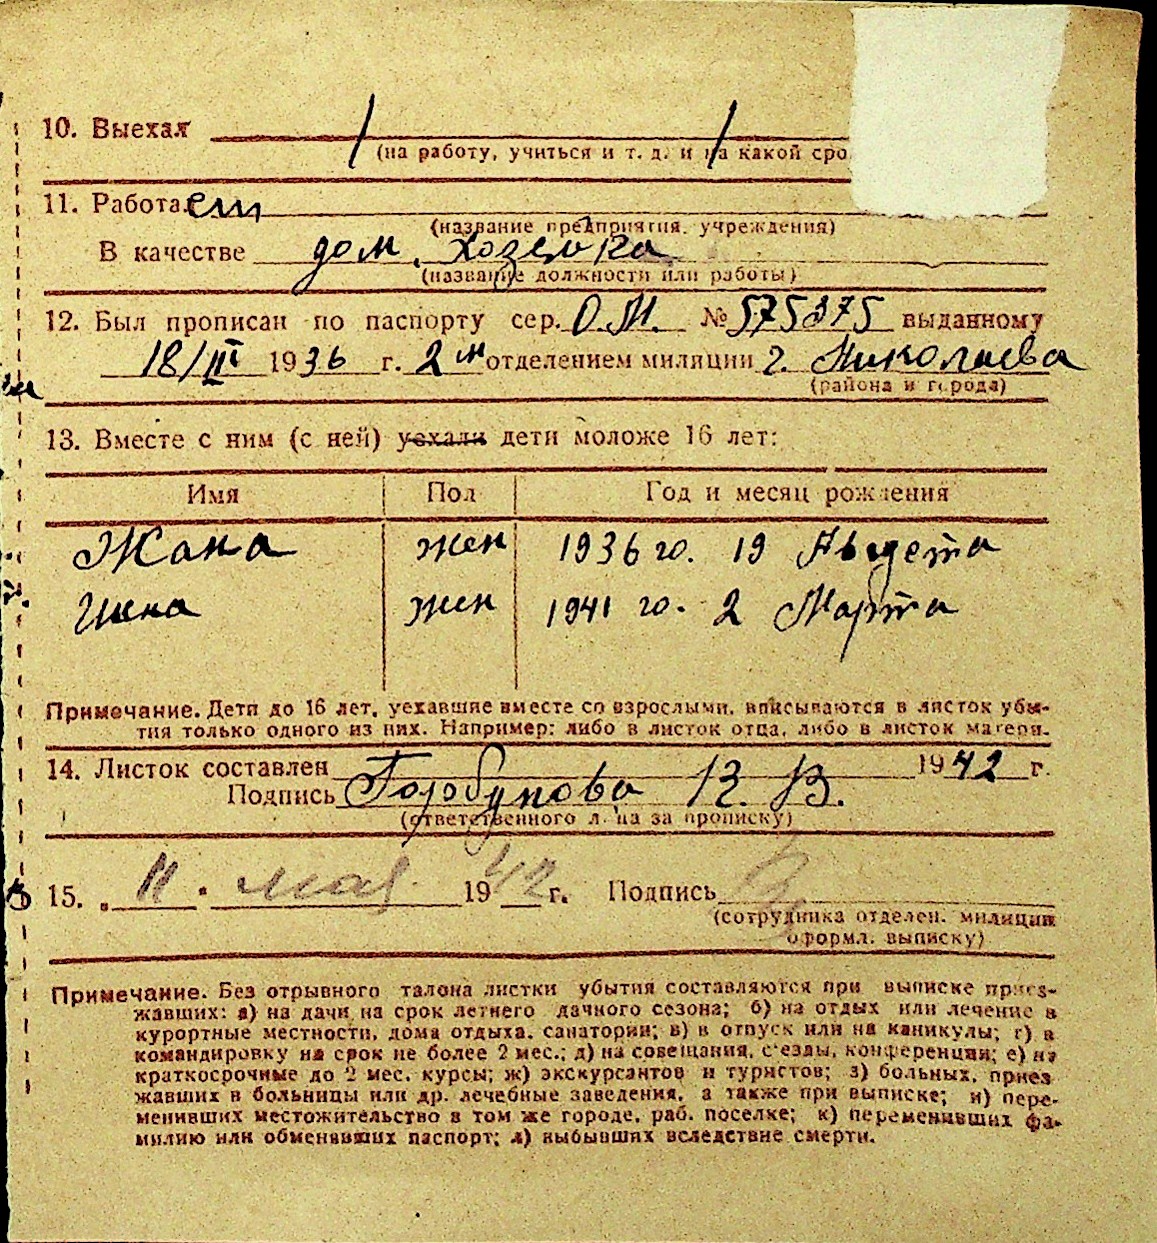 10. Выехал
(на работу, учиться и т. д. и на какой сро
11. Работает
(название предприятия, учреждения)
В качестве дом. хозейка
(название должности или работы)
12. Был прописан по паспорту сер. О.М. № 575375 выданному
18/III 1936 г. 2 м отделением милиции г. Николаева
(района и города)
13. Вместе с ним (с ней) уехали дети моложе 16 лет:
Имя Пол Год и месяц рождения
Жана жен 1936 го. 19 Августа
жен 1941 го. 2 Марта
Примечание. Дети до 16 лет, уехавшие вместе со взрослыми, вписываются в листок убы-
тия только одного из них. Например: либо в листок отца, либо в листок матери.
14. Листок составлен 1942 г.
Подпись Горбунова В.
(ответственного лица за прописку)
15. „ 11 " мая 1942 г. Подпись
(сотрудника отделен. милиции
оформл. выписку)
Примечание. Без отрывного талона листки убытия составляются при выписке приез-
жавших: а) на дачи на срок летнего дачного сезона; б) на отдых или лечение в
курортные местности, дома отдыха, санатории; в) в отпуск или на каникулы; г) в
командировку на срок не более 2 мес.; д) на совещания, с'езды, конференции; е) на
краткосрочные до 2 мес. курсы; ж) экскурсантов и туристов; з) больных, приез
жавших в больницы или др. лечебные заведения, а также при выписке; и) пере-
менивших местожительство в том же городе, раб. поселке; к) переменивших фа-
милию или обменявших паспорт; л) выбывших вследствие смерти.